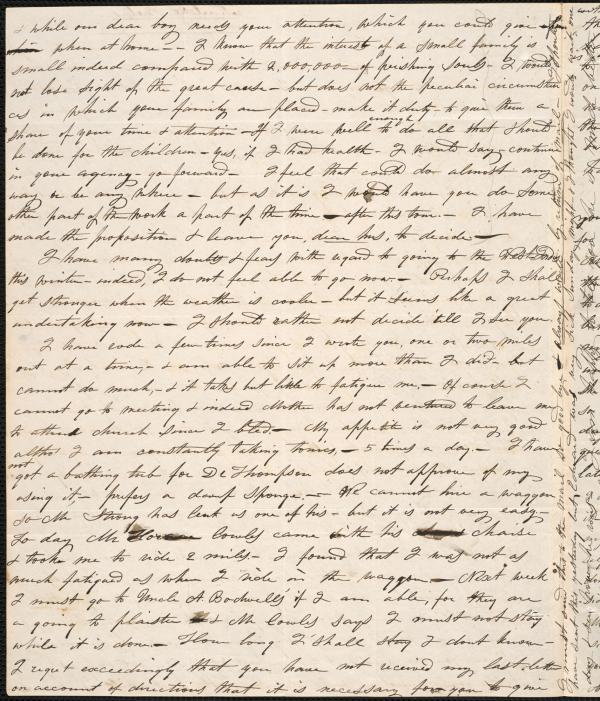 & while our dear boy needs your attention, which you could give
when at home. — I know that the interest of a small family is
small indeed compared with 2,000,000 of perishing souls — I would
not lose sight of the great cause — but does not the peculiar circumstan
ces in which your family are placed — make it duty — to give them a
share of your time & attention — If I were well enough to do all that should
be done for the children — yes, if I had health — I would say — continue
in your agency — go forward — I feel that I could do almost any
way or be any where — but as it is I would have you do some
other part of the work a part of the time — after this tour. — I have
made the proposition & leave you, dear hus, to decide —
I have many doubts & fears with regard to going to the West Indies
this winter — indeed, I do not feel able to go now. — Perhaps I shall
get stronger when the weather is cooler — but it seems like a great
undertaking now — I should rather not decide 'till I see you
I have rode a few times since I wrote you, one or two miles
out at a time, — & am able to sit up more than I did — but
cannot do much, — & it takes but little to fatigue me, — Of course I
cannot go to meeting & indeed Mother has not ventured to leave me
to attend church since I bled. — My appetite is not very good
altho' I am constantly taking tonics, — 5 times a day. — I have
not
got a bathing tub for Dr Thompson does not approve of my
using it — prefers a damp sponge. — We cannot hire a waggon
so Mr Strong has lent us one of his — but it is not very easy —
To day Mr Cowles came with his chaise
& took me to ride 2 miles — I found that I was not as
much fatigued as when I ride in the waggon — Next week
I must go to Uncle A. Bodwell's if I am able, for they are
a going to plaister & Mr Cowles says I must not stay
while it is done — How long I shall stay I dont know —
I regret exceedingly that you have not received my last letter
on account of directions that it is necessary for you to give